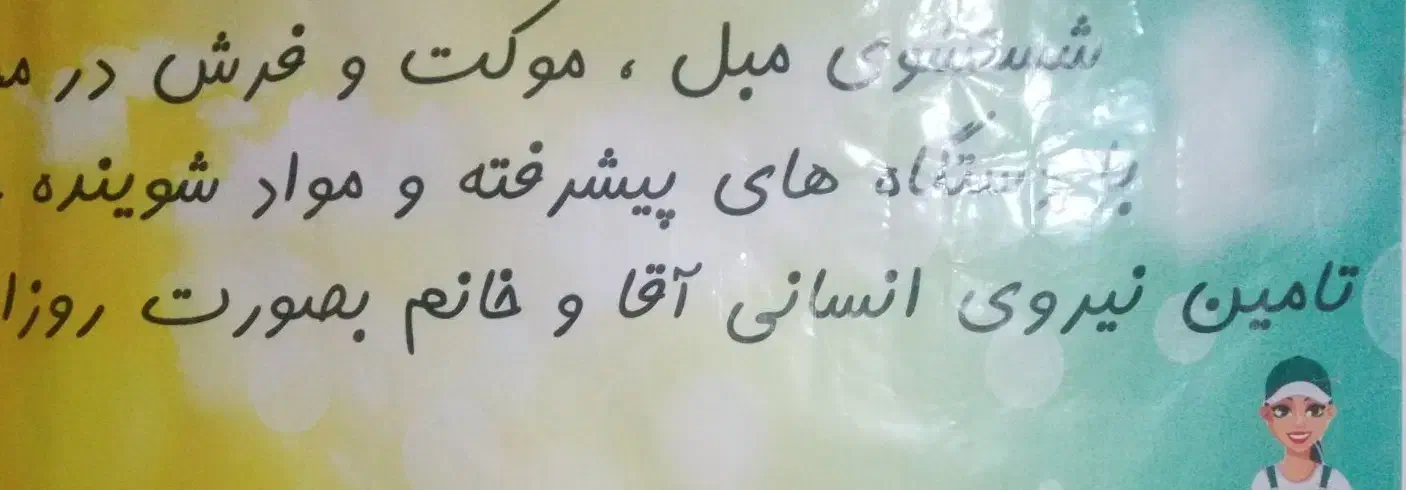 شستشوی مبل ، موکت و فرش در
با دستگاه های پیشرفته و مواد شوینده
تامین نیروی انسانی آقا و خانم بصورت